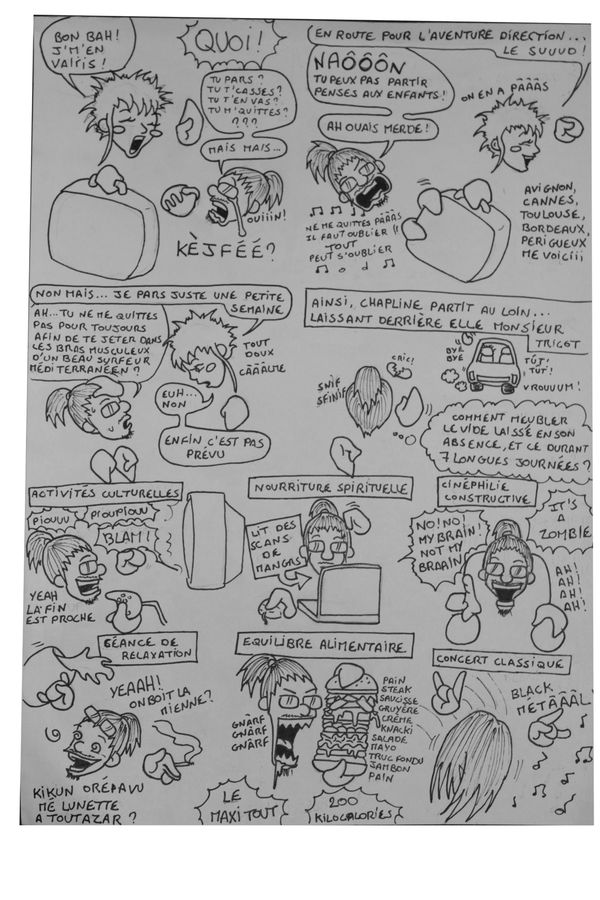 BON BAH !
J'M'EN
VAIS !
QUOI !
TU PARS ?
TU T'CASSES ?
TU T'EN VAS ?
TU M'QUITTES ?
???
MAIS MAIS...
OUIIIN!
KÈJFÉÉ ?
EN ROUTE POUR L'AVENTURE DIRECTION...
LE SUUUD !
NAÔÔÔN
TU PEUX PAS PARTIR
PENSES AUX ENFANTS !
ON EN A PÂÂÂS
AH OUAIS MERDE !
NE ME QUITTES PÂÂÂS
IL FAUT OUBLIER
TOUT
PEUT S'OUBLIER
AVIGNON,
CANNES,
TOULOUSE,
BORDEAUX,
PERIGUEUX
ME VOICIII
NON MAIS... JE PARS JUSTE UNE PETITE
SEMAINE
AH... TU NE ME QUITTES
PAS POUR TOUJOURS
AFIN DE TE JETER DANS
LES BRAS MUSCULEUX
D'UN BEAU SURFEUR
MÉDITERRANÉEN ?
TOUT
DOUX
CÂÂÂLME
EUH...
NON
ENFIN C'EST PAS
PRÉVU
AINSI, CHAPLINE PARTIT AU LOIN...
LAISSANT DERRIÈRE ELLE MONSIEUR
TRICOT
BYE
BYE
TÛT!
TUT!
VROUUUM !
CRIC!
SNIF
SFINIF
COMMENT MEUBLER
LE VIDE LAISSÉ EN SON
ABSENCE, ET CE DURANT
7 LONGUES JOURNÉES ?
ACTIVITÉS CULTURELLES
PIOUUU
PIOUPIOUU
BLAM !
YEAH
LA FIN
EST PROCHE
NOURRITURE SPIRITUELLE
LIT DES
SCANS
DE
MANGAS
CINÉPHILIE
CONSTRUCTIVE
NO! NO!
MY BRAIN!
NOT MY
BRAAIN
IT'S
A
ZOMBIE
AH!
AH!
AH!
AH!
SÉANCE DE
RELAXATION
YEAAH!
ON BOIT LA
MIENNE?
KIKUN ORÉPAVU
MÉ LUNETTE
A TOUTAZAR ?
EQUILIBRE ALIMENTAIRE
GNÂRF
GNÂRF
GNÂRF
PAIN
STEAK
SAUCISSE
GRUYÈRE
CRÈME
KNACKI
SALADE
MAYO
TRUC FONDU
JAMBON
PAIN
LE
MAXI TOUT
200
KILOCALORIES
CONCERT CLASSIQUE
BLACK
METÂÂÂL